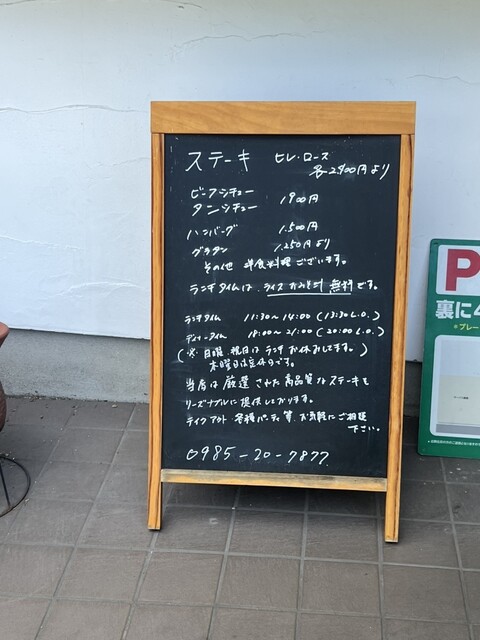 ステーキ ヒレ・ロース
各2900円より
ビーフシチュー
タンシチュー 1900円
ハンバーグ 1.500円
グラタン 1.250円より
その他 洋食料理ございます。
ランチタイムは、ライス おみそ汁 無料です。
ランチタイム 11:30〜14:00(13:30 L.O.)
ディナータイム 18:00〜21:00(20:00 L.O.)
(※ 日曜、祝日は ランチ お休みしてます。)
木曜日は定休日です。
当店は 厳選 された 高品質 な ステーキを
リーズナブルに 提供しております。
テイクアウト 各種パーティ等、お気軽にご相談
下さい。
0985-20-7877
P
裏に4